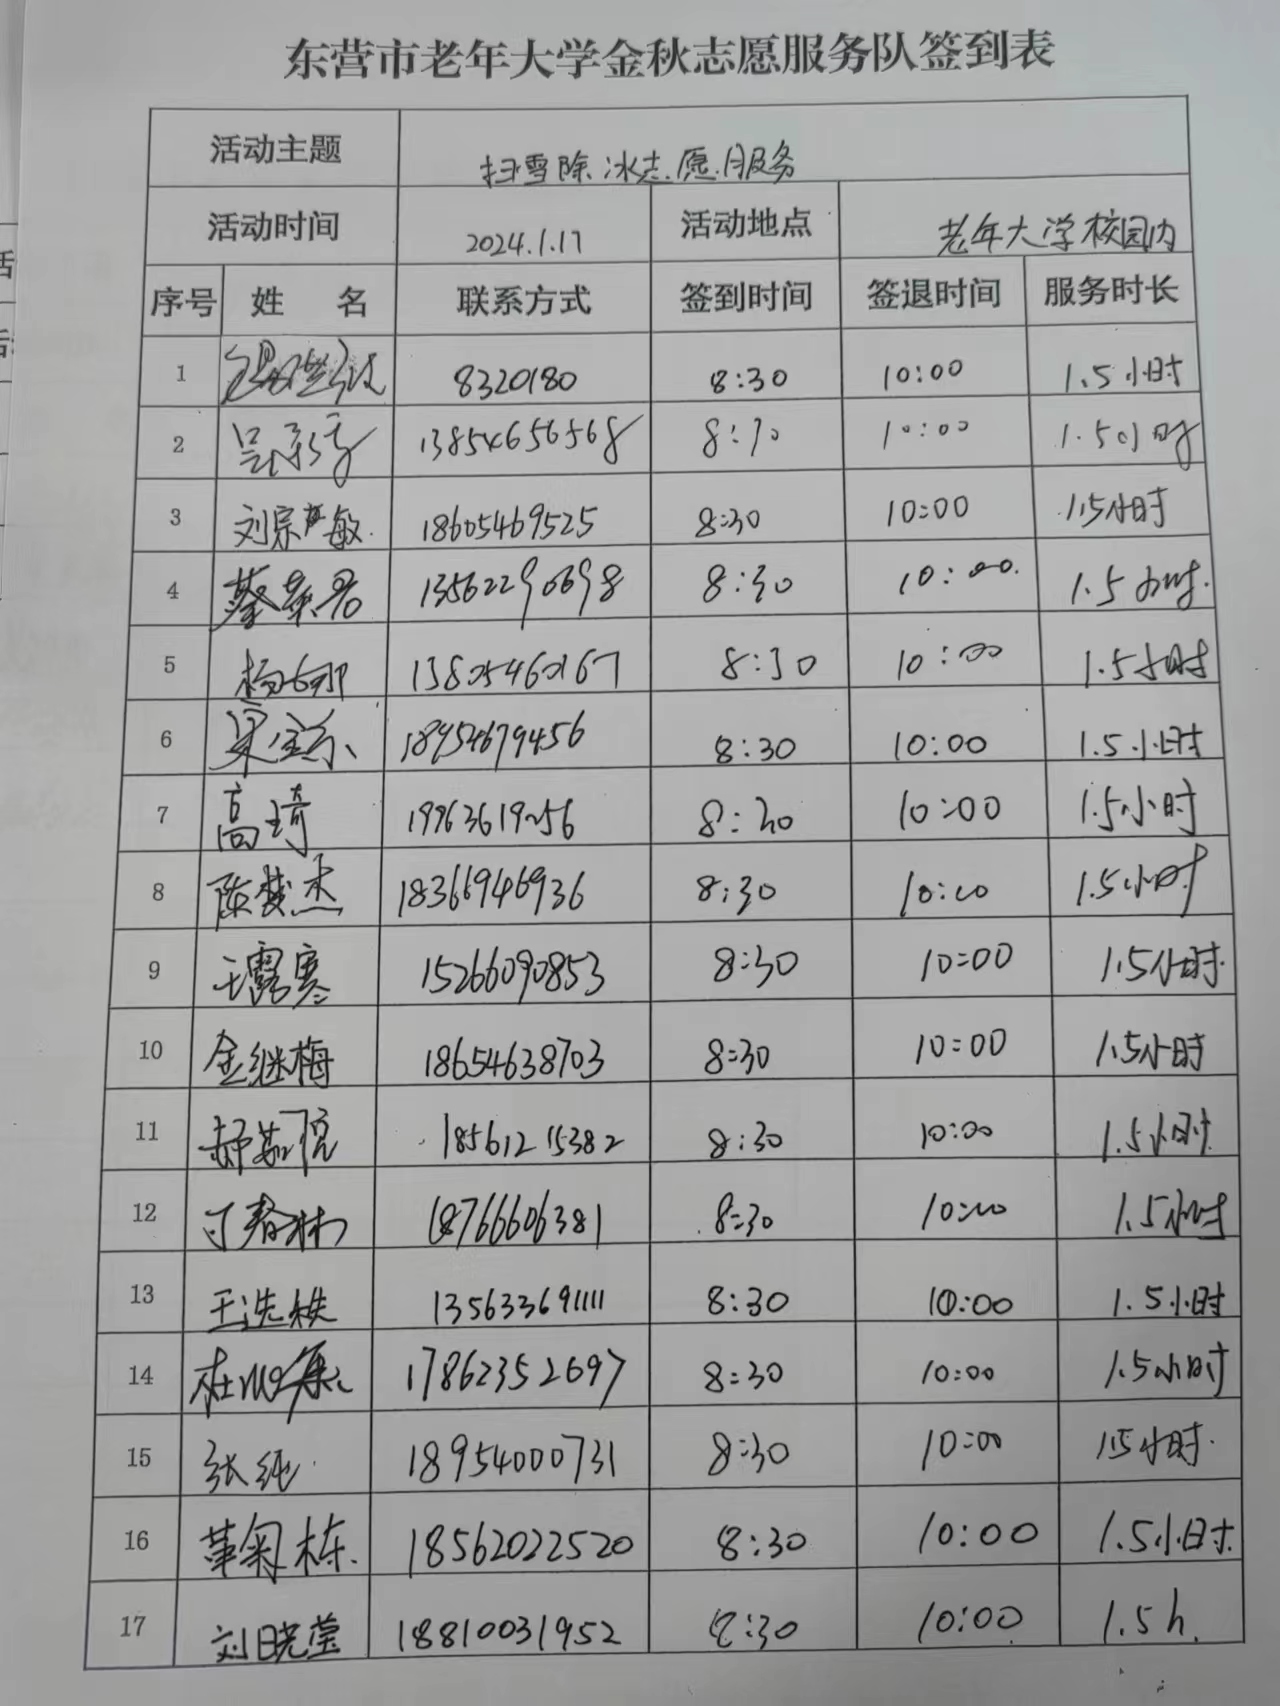 东营市老年大学金秋志愿服务队签到表
活动主题 扫雪除冰志愿服务
活动时间 2024.1.17 活动地点 老年大学校园内
序号 姓 名 联系方式 签到时间 签退时间 服务时长
1 8320180 8:30 10:00 1.5小时
2 13854656568 8:30 10:00 1.5小时
3 刘宗敏 18605469525 8:30 10:00 1.5小时
4 13562290698 8:30 10:00. 1.5小时.
5 杨娜 13805460167 8:30 10:00 1.5小时
6 18954679456 8:30 10:00 1.5小时
7 高琦 8:30 10:00 1.5小时
8 陈梦杰 18366946936 8:30 10:00 1.5小时
9 王露寒 15266090853 8:30 10:00 1.5小时.
10 金继梅 18654638703 8:30 10:00 1.5小时
11 郝茹悦 18561215382 8:30 10:00 1.5小时
12 丁春林 18766606381 8:30 10:00 1.5小时
13 王选轶 135633691111 8:30 10:00 1.5小时
14 17862352697 8:30 10:00 1.5小时
15 张纯 18954000731 8:30 10:00 1.5小时.
16 栋. 18562022520 8:30 10:00 1.5小时.
17 刘晓莹 18810031952 8:30 10:00 1.5h.